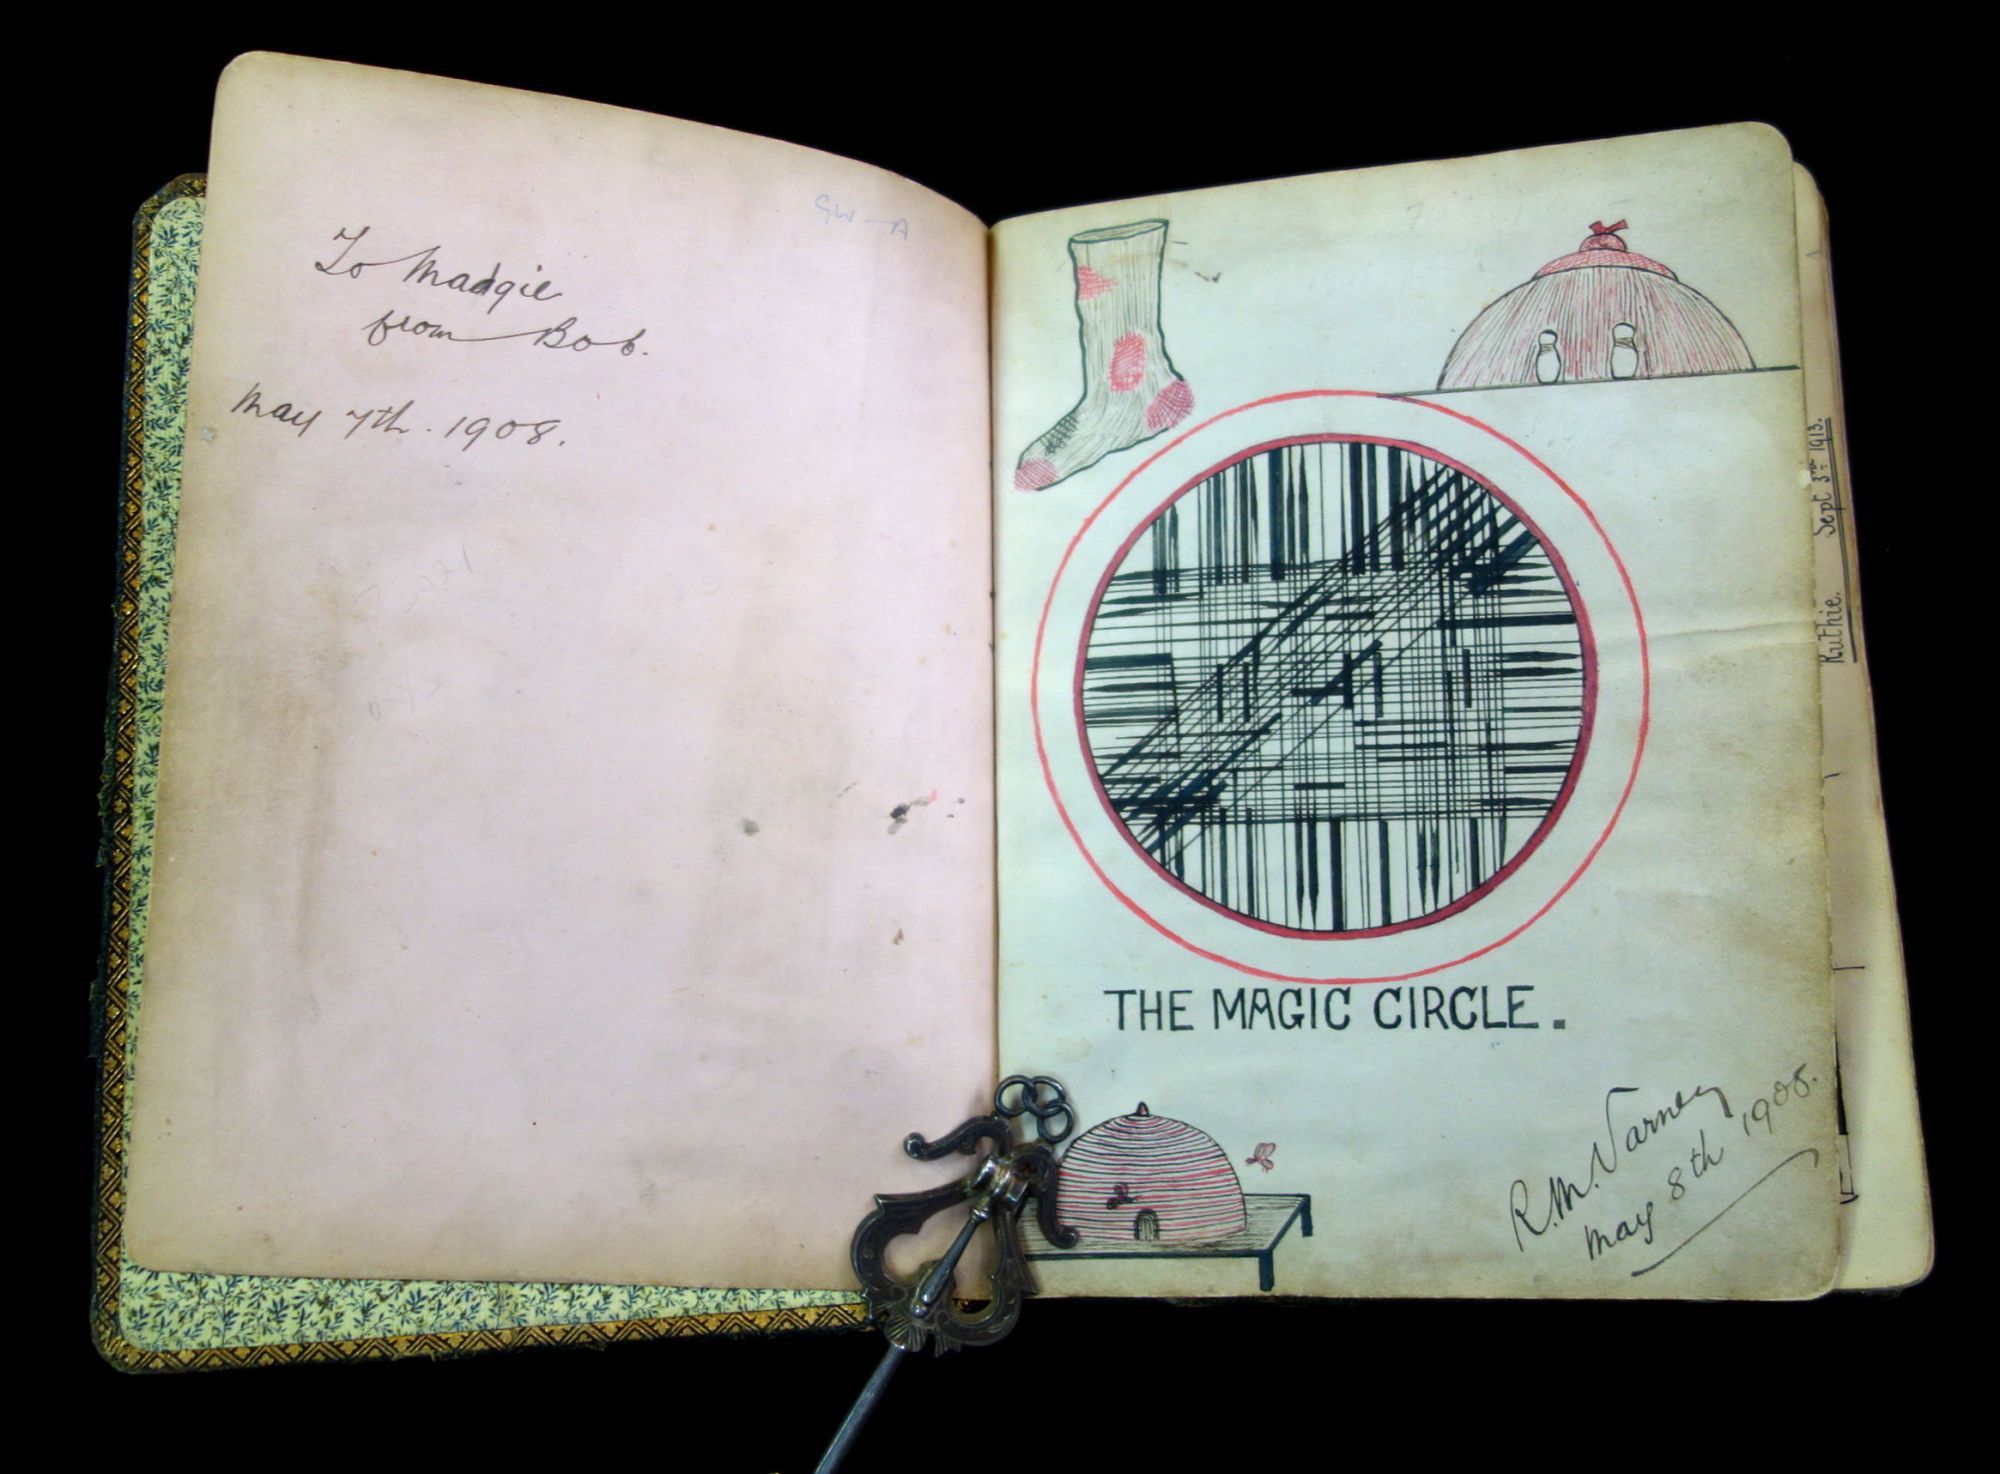 To Madgie
from Bob.
May 7th. 1908.
THE MAGIC CIRCLE.
R.M. Varney
May 8th 1908.
Ruthie. Sept 3rd 1913.